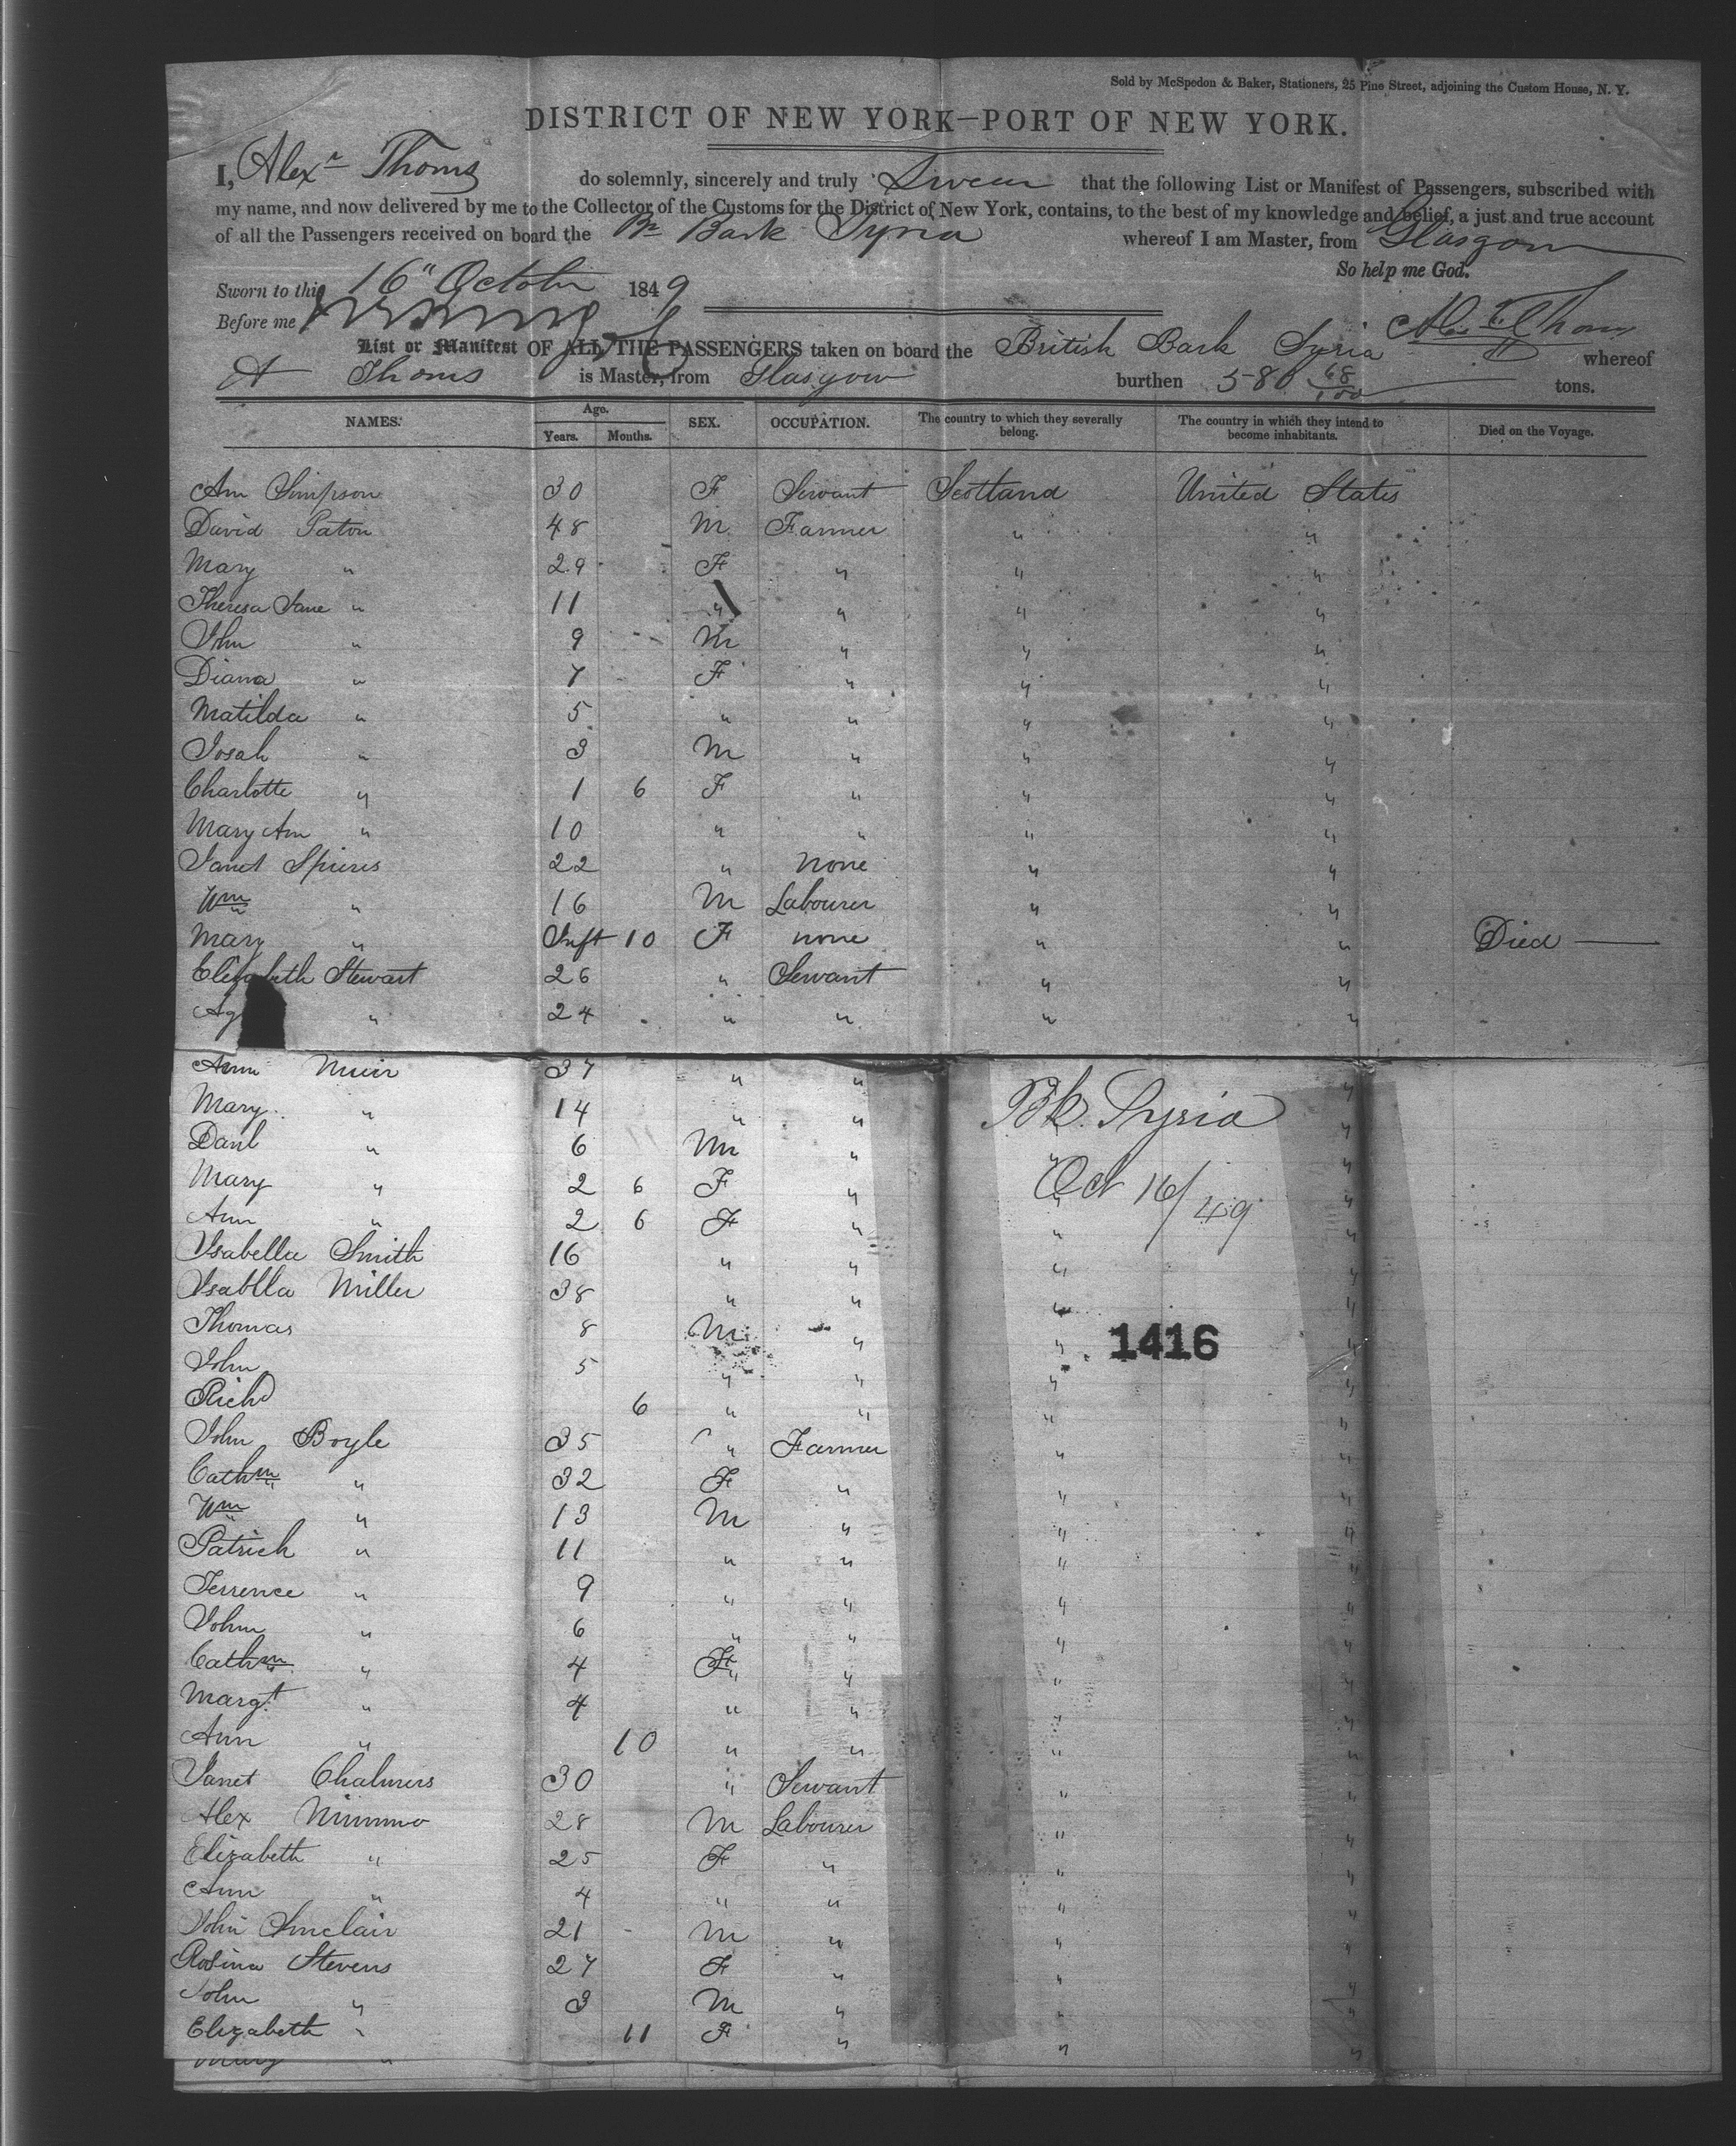 Sold by McSpedon & Baker, Stationers, 25 Pine Street, adjoining the Custom House, N. Y.
DISTRICT OF NEW YORK—PORT OF NEW YORK.
I, Alexr Thoms do solemnly, sincerely and truly Swear that the following List or Manifest of Passengers, subscribed with
my name, and now delivered by me to the Collector of the Customs for the District of New York, contains, to the best of my knowledge and belief, a just and true account
of all the Passengers received on board the Br Bark Syria whereof I am Master, from Glasgow
So help me God.
Sworn to this 16" October 1849
Before me
List or Manifest OF ALL THE PASSENGERS taken on board the British Bark Syria whereof
A Thoms is Master, from Glasgow burthen 580 68/100 tons.
NAMES. Age. Years. Months. SEX. OCCUPATION. The country to which they severally belong. The country in which they intend to become inhabitants. Died on the Voyage.
Ann Simpson 30 F Servant Scotland United States
David Paton 48 M Farmer " "
Mary " 29 F " " "
Theresa Jane " 11 " " " "
John " 9 M " " "
Diana " 7 F " " "
Matilda " 5 " " " "
Josah " 3 M " " "
Charlotte " 1 6 F " " "
Mary Ann " 10 " " " "
Janet Spiers 22 " none " "
Wm " 16 M Labourer " "
Mary " Inft 10 F none " " Died
Elizabeth Stewart 26 " Servant " "
Ag " 24 " " " "
Ann Muir 37 " " "
Bk. Syria
Mary " 14 " " "
Danl " 6 M " " "
Mary " 2 6 F " " "
Oct 16/49
Ann " 2 6 F " " "
Isabella Smith 16 " " " "
Isablla Miller 38 " " " "
Thomas 8 M " " "
1416
John 5 " " " "
Richd 6 " " " "
John Boyle 35 " Farmer " "
Cathrn " 32 F " " "
Wm " 13 M " " "
Patrick " 11 " " " "
Terrence " 9 " " " "
John " 6 " " " "
Cathrn " 4 F " " "
Margt " 4 " " " "
Ann " 10 " " " "
Janet Chalmers 30 " Servant " "
Alex Nimmo 28 M Labourer " "
Elizabeth " 25 F " " "
Ann " 4 " " " "
John Sinclair 21 M " " "
Rosina Stevens 27 F " " "
John " 3 M " " "
Elizabeth " 11 F " " "
Mary "